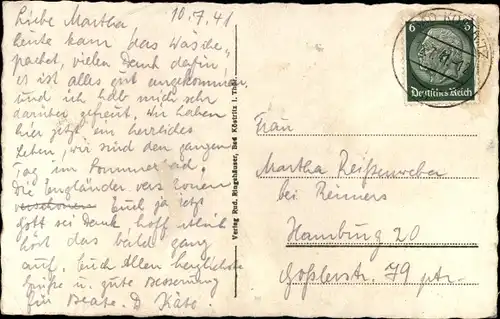 10.7.41
Liebe Martha
heute kam das Wäsche-
packet, vielen Dank dafür,
es ist alles gut angekommen
und ich hab mich sehr
darüber gefreut. Wir haben
hier jetzt ein herrliches
Leben, wir sind den ganzen
Tag im Sommerbad.
Die Engländer verschonen
Euch ja jetzt
Gott sei Dank, hoff
hört das bald ganz
auf. Euch Allen herzlichste
Grüße u. gute Besserung
für Beate. D Käte.
Verlag Rud. Ringshäuser, Bad Köstritz i. Thür.
6 6
Deutsches Reich
Frau
Martha Reißenweber
bei Reimers
Hamburg 20
Goßlerstr. 79 ptr.